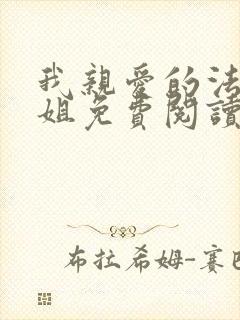 我親愛的法
姐免費閱讀
布拉希姆-賽巴